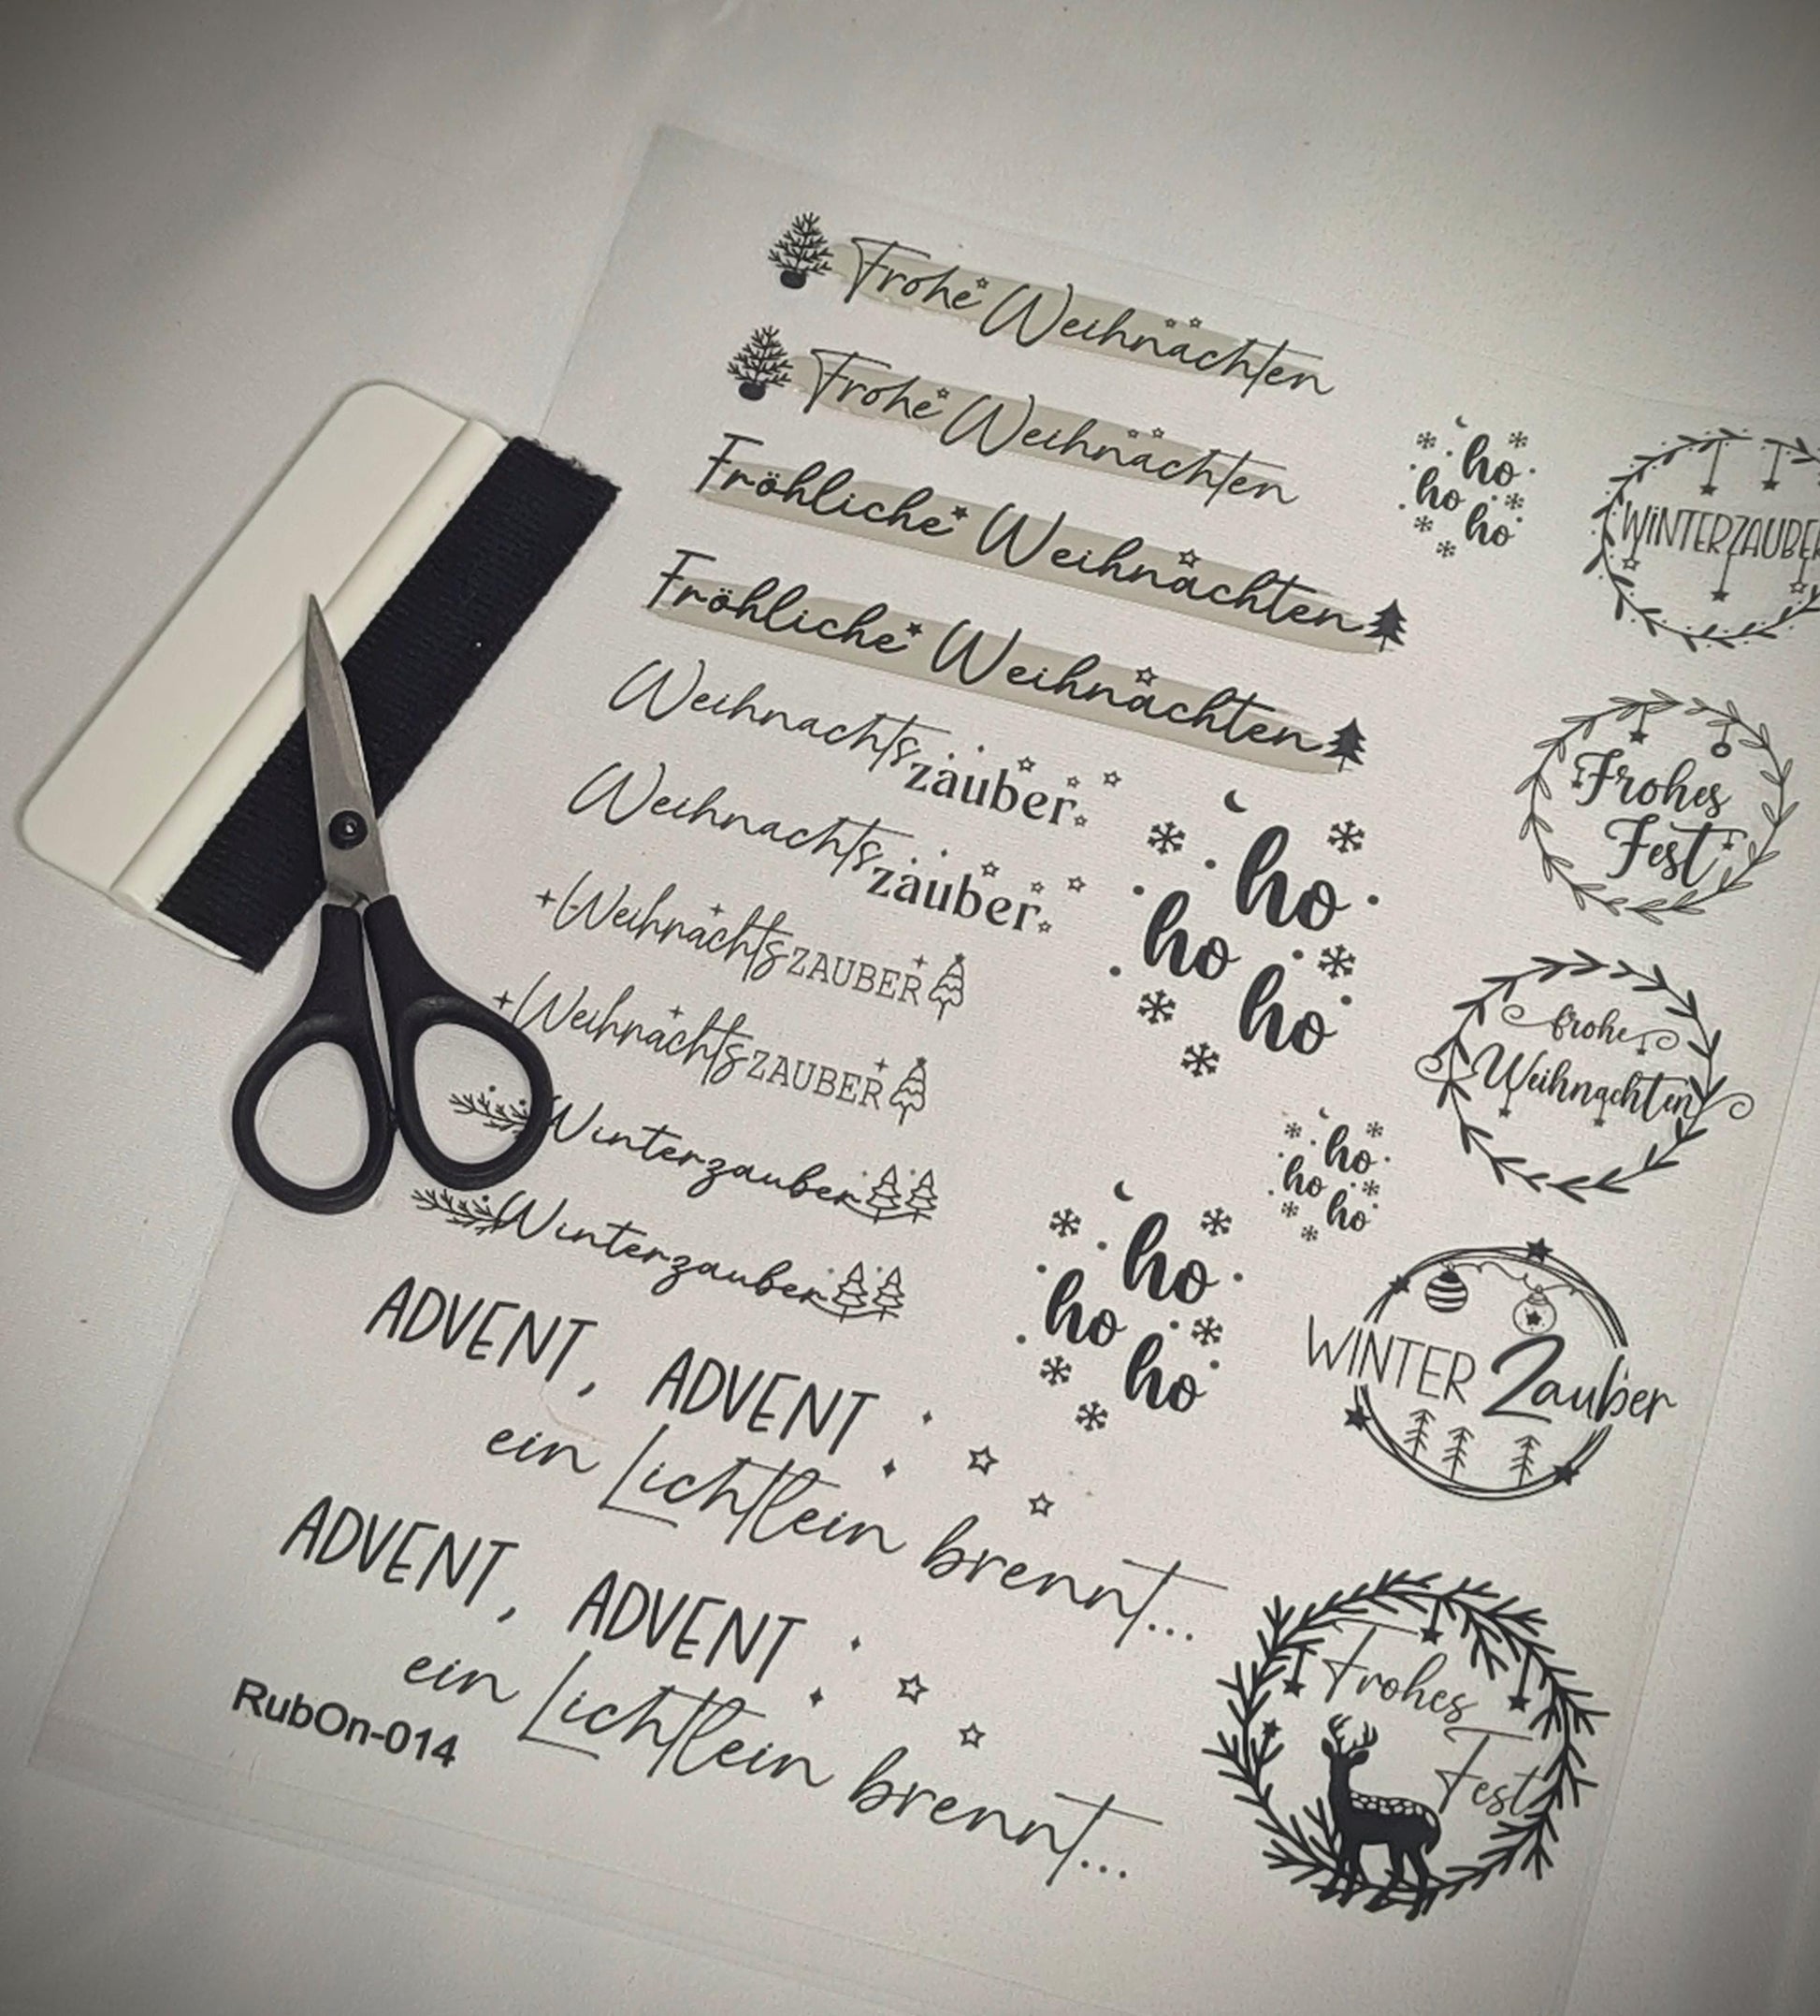 Frohe Weihnachten
Frohe Weihnachten
Fröhliche Weihnachten
Fröhliche Weihnachten
Weihnachts
zauber
Weihnachts
zauber
Weihnachts ZAUBER
Weihnachts ZAUBER
Winterzauber
Winterzauber
ADVENT, ADVENT
ein Lichtlein brennt...
ADVENT, ADVENT
ein Lichtlein brennt...
RubOn-014
ho
ho
ho
ho
ho
ho
ho
ho
ho
ho
ho
ho
WINTERZAUBER
Frohes
Fest
frohe
Weihnachten
WINTER Zauber
Frohes
Fest